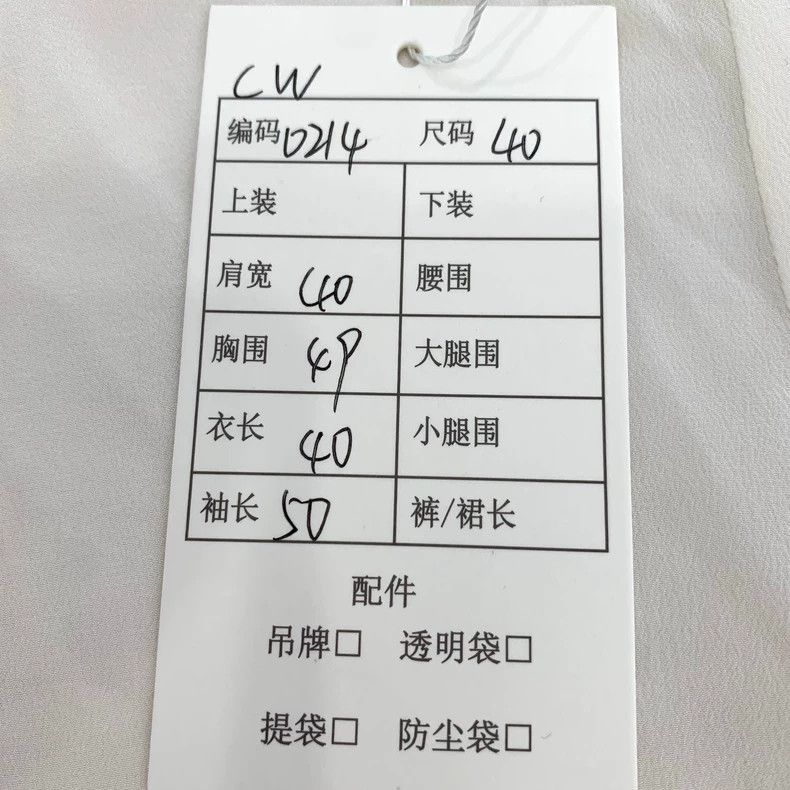 CW
编码 0214 尺码 40
上装 下装
肩宽 40 腰围
胸围 49 大腿围
衣长 40 小腿围
袖长 50 裤/裙长
配件
吊牌□ 透明袋□
提袋□ 防尘袋□